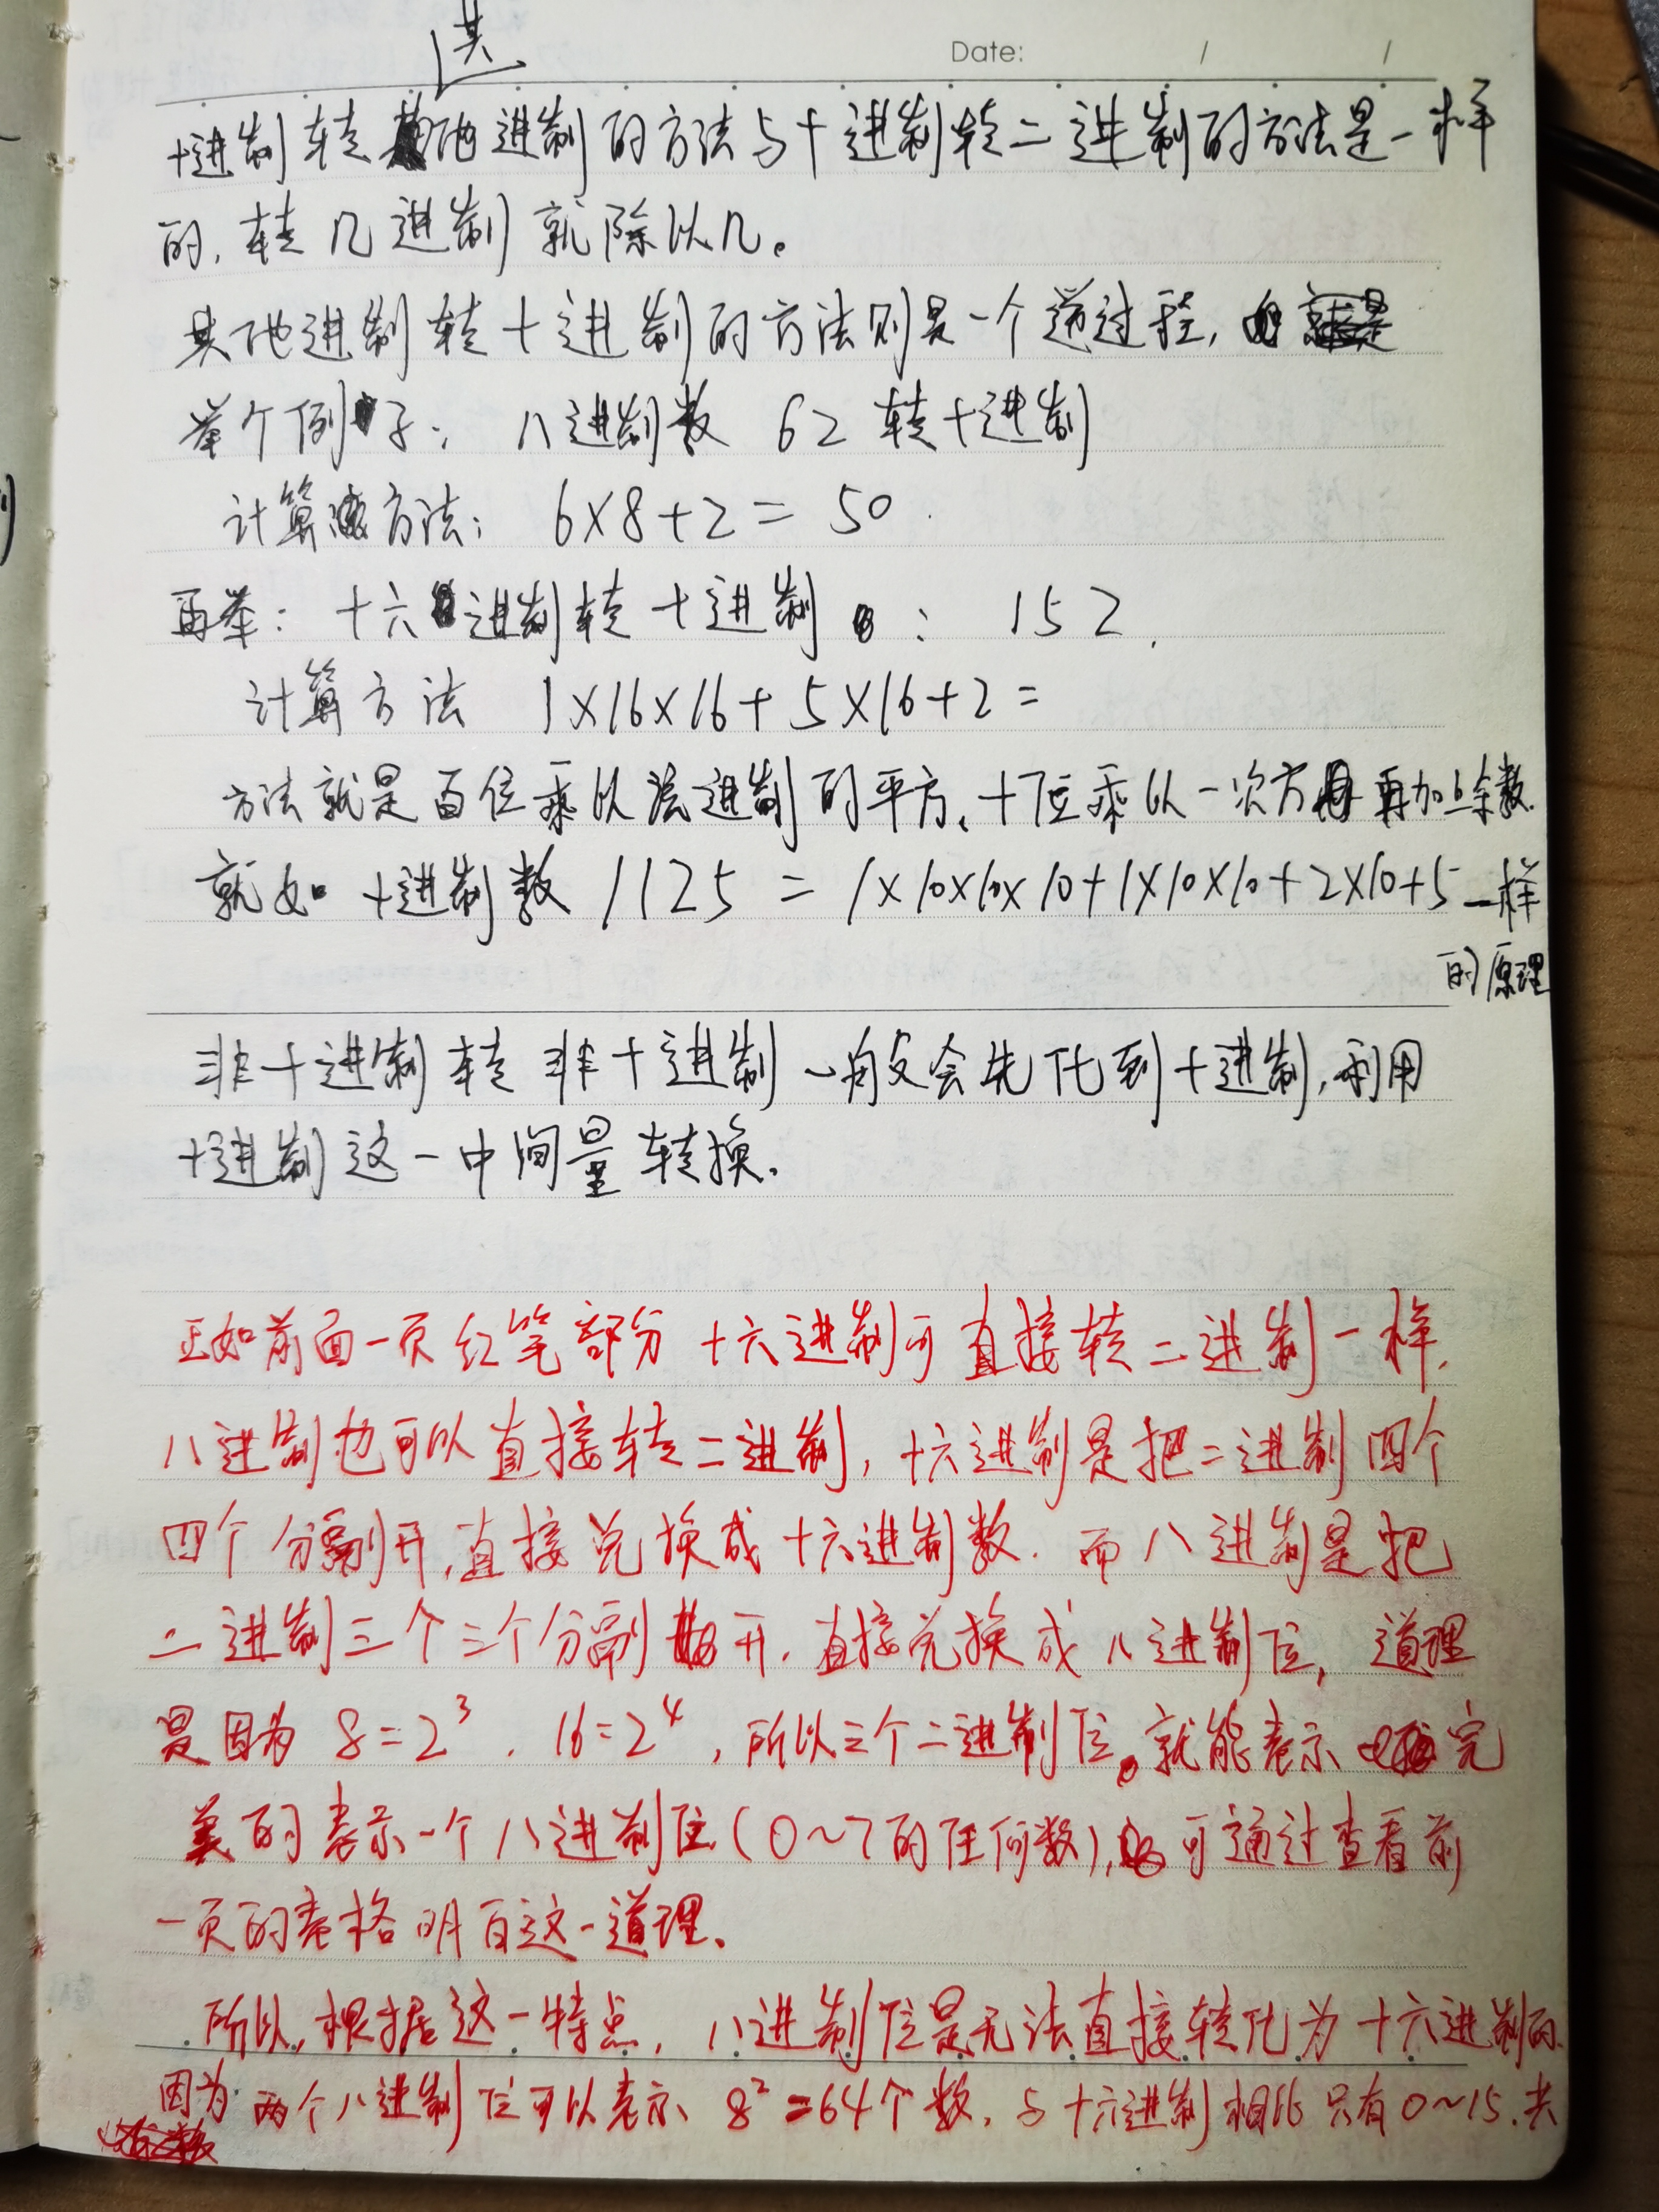 其
Date: / /
十进制转他进制的方法与十进制转二进制的方法是一样
的,转几进制就除以几。
其他进制转十进制的方法则是一个逆过程,
举个例子: 八进制数 62 转十进制
计算方法: 6×8+2=50.
再举: 十六进制转十进制: 152.
计算方法 1×16×16+5×16+2=
方法就是百位乘以进制的平方、十位乘以一次方再加上余数.
就如十进制数 1125 = 1×10×10×10+1×10×10+2×10+5 一样
的原理
非十进制转非十进制一般会先化到十进制,利用
十进制这一中间量转换.
正如前面一页红笔部分十六进制可直接转二进制一样,
八进制也可以直接转二进制,十六进制是把二进制四个
四个分割开,直接兑换成十六进制数.而八进制是把
二进制三个三个分割开.直接兑换成八进制位,道理
是因为 8=2³. 16=2⁴,所以三个二进制位就能表示完
美的表示一个八进制位(0~7的任何数),可通过查看前
一页的表格明白这一道理.
所以,根据这一特点,八进制位是无法直接转化为十六进制的.
因为两个八进制位可以表示 8²=64个数.与十六进制相比只有0~15.共